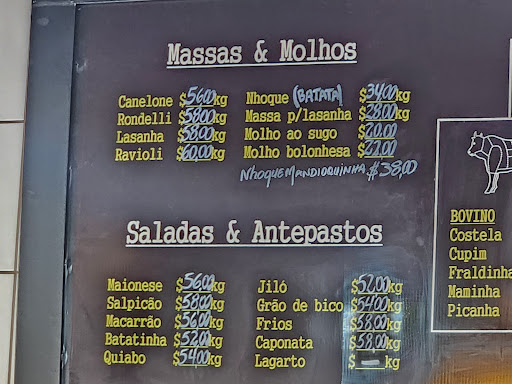 Massas & Molhos
Canelone $56,00kg
Rondelli $58,00kg
Lasanha $58,00kg
Ravioli $60,00kg
Nhoque (BATATA) $34,00kg
Massa p/lasanha $28,00kg
Molho ao sugo $20,00
Molho bolonhesa $22,00
NhoqueMANDIOQUINHA $38,00
Saladas & Antepastos
Maionese $56,00kg
Salpicão $58,00kg
Macarrão $56,00kg
Batatinha $52,00kg
Quiabo $54,00kg
Jiló $52,00kg
Grão de bico $54,00kg
Frios $58,00kg
Caponata $58,00kg
Lagarto $ — kg
BOVINO
Costela
Cupim
Fraldinha
Maminha
Picanha